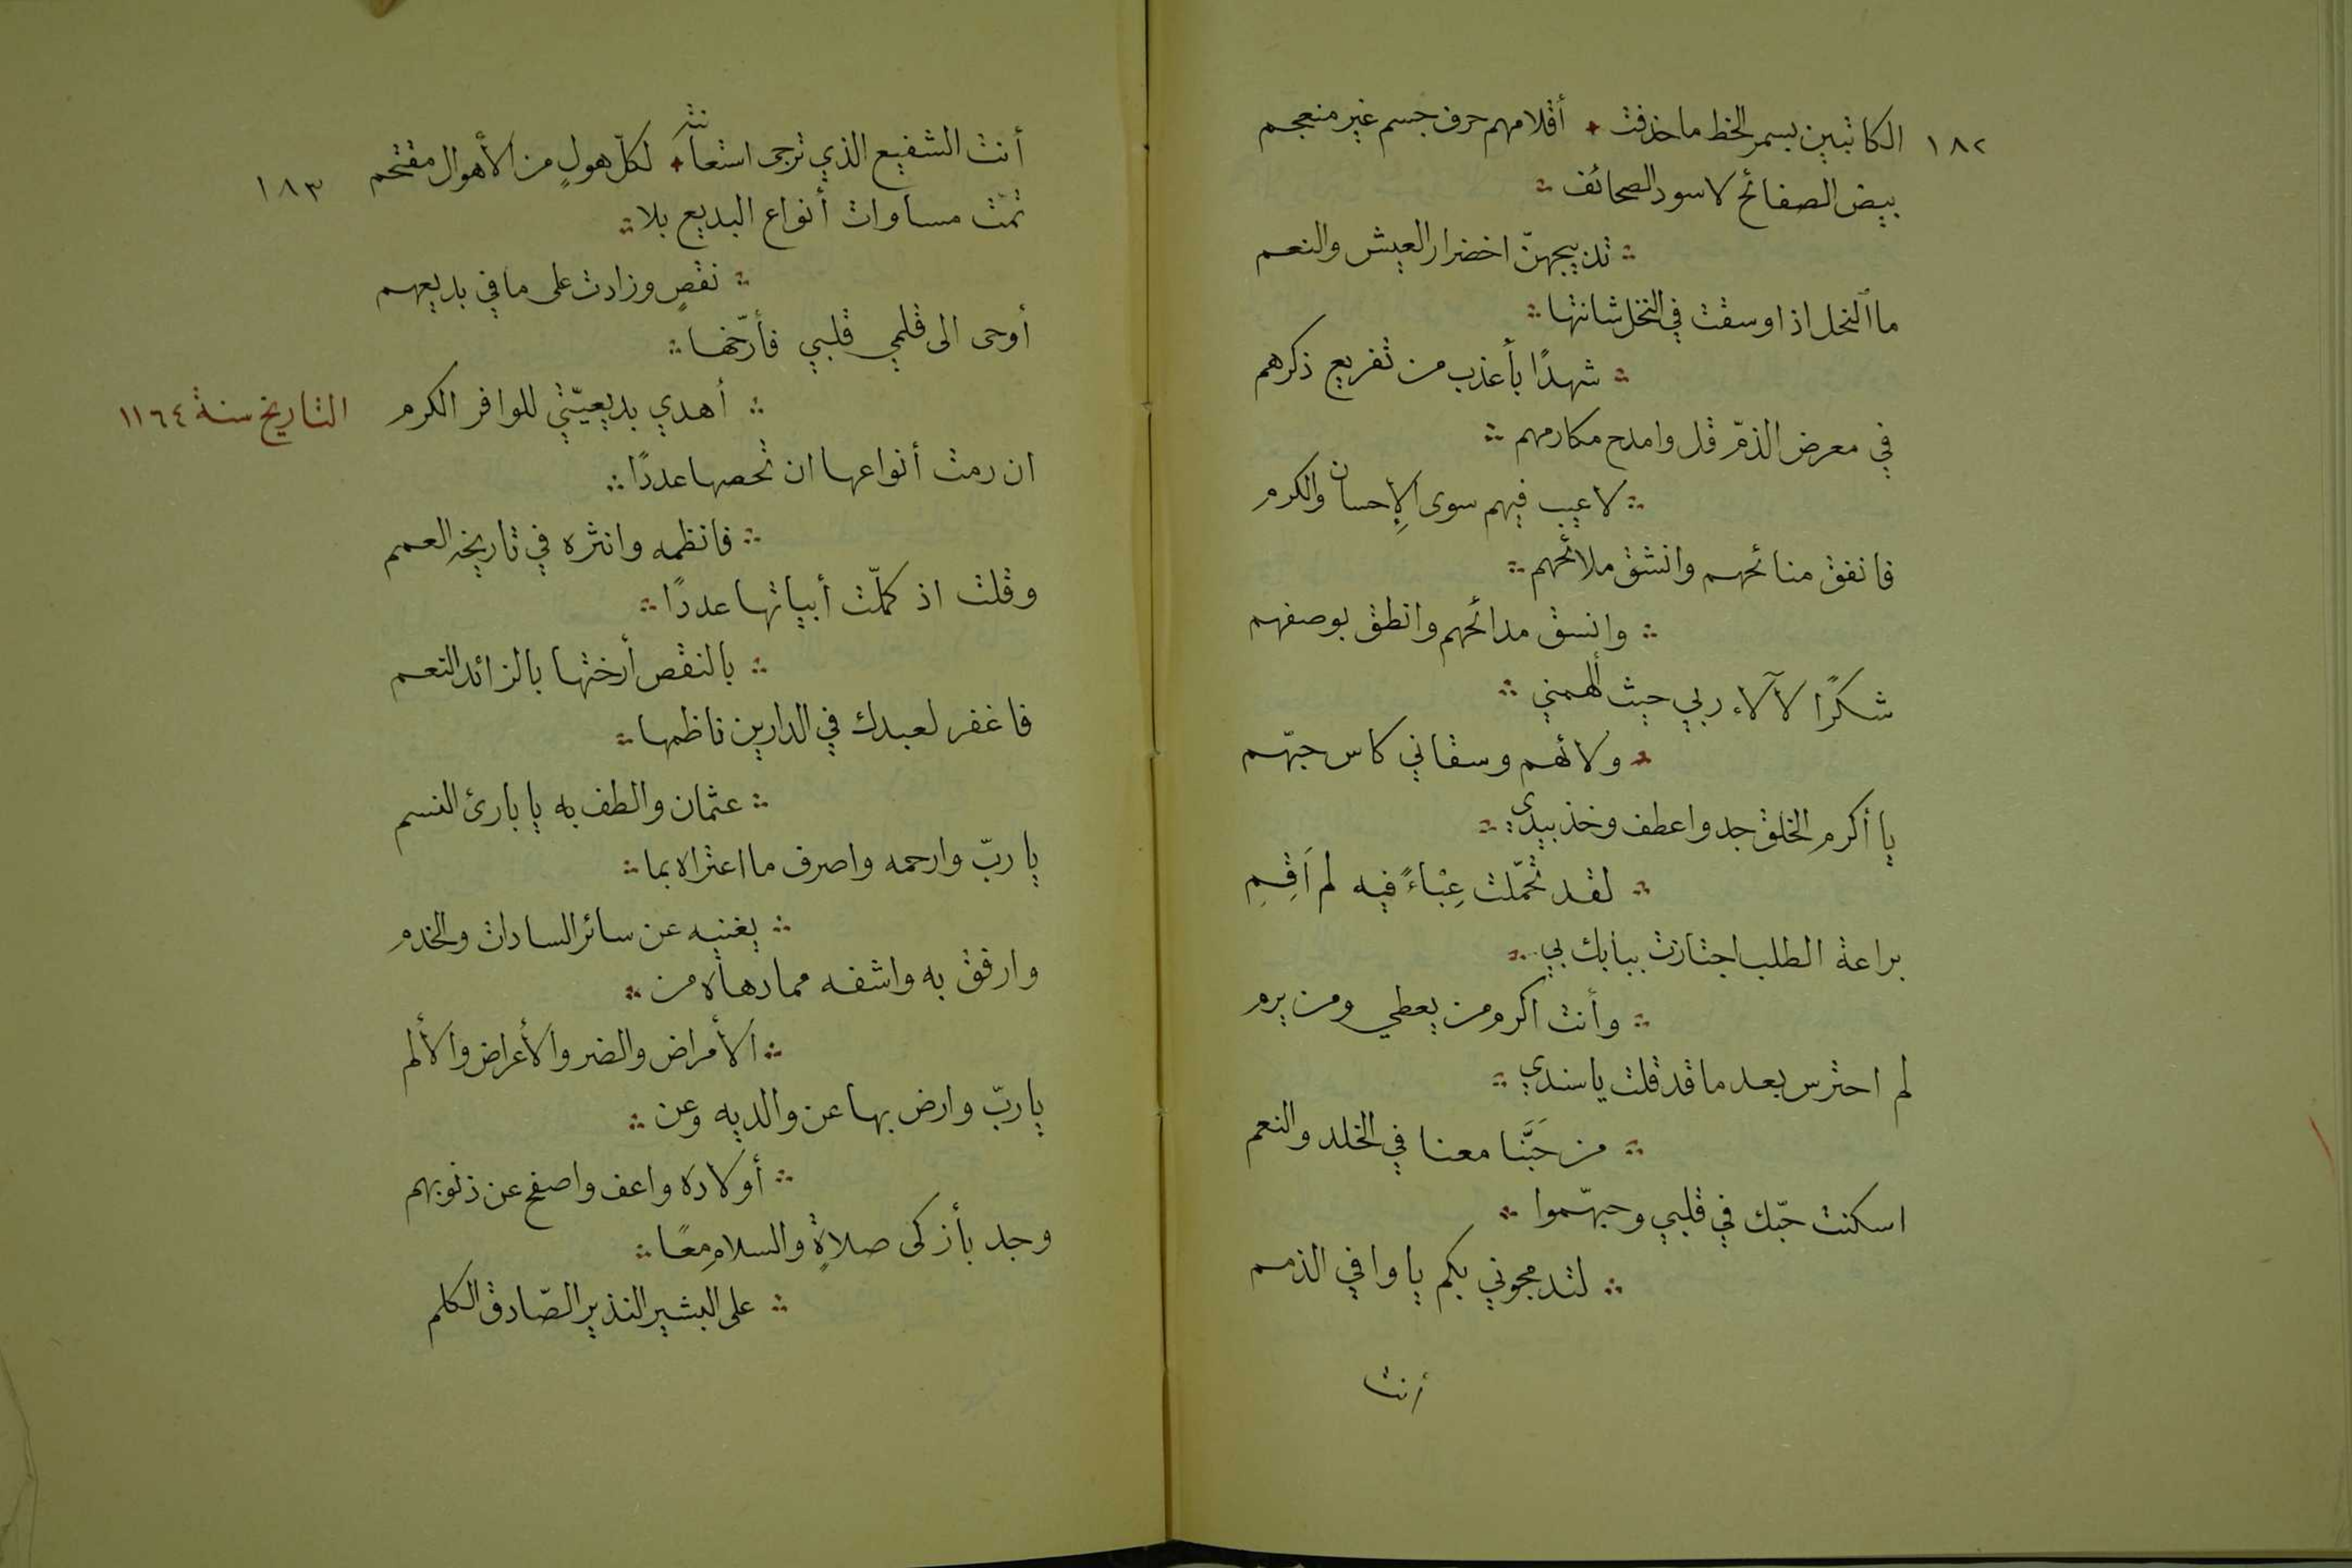 ١٨٢
الكاتبين بسمر الخط ما حذفت أقلامهم حرف جسم غير منعجم
بيض الصفائح لا سود الصحائف
تدبيجهنّ اخضرار العيش والنعم
ما النحل اذا وسقت في النخل شانتها
شهدًا بأعذب من تفريع ذكرهم
في معرض الذمّ قل وامدح مكارمهم
لا عيب فيهم سوى الإحسان والكرم
فانفق منائحهم وانشق ملائحهم
وانسق مدائحهم وانطق بوصفهم
شكرًا لآلاء ربي حيث ألهمني
ولائهم وسقاني كاس حبّهم
يا أكرم الخلق جد واعطف وخذ بيدي
لقد تحمّلت عِبْاءً فيه لم أَقِمِ
براعة الطلب اجتازت ببابك بي
وأنت اكرم من يعطي ومن يرم
لم احترس بعد ما قد قلت يا سندي
من حَبَّنا معنا في الخلد والنعم
اسكنت حبّك في قلبي وحبهّموا
لتدمجوني بكم يا وافي الذمم
أنت
١٨٣
أنت الشفيع الذي ترجى استعانته لكلّ هولٍ من الأهوال مقتحم
تمّت مساوات أنواع البديع بلا
نقصٍ وزادت على ما في بديعهم
أوحى الى قلمي قلبي فأرّخها
أهدي بديعيّتي للوافر الكرم التاريخ سنة ١١٦٤
ان رمت أنواعها ان تحصها عددًا
فانظمه وانثره في تاريخه العمم
وقلت اذ كملّت أبياتها عددًا
بالنقص أرختها بالزائد النعم
فاغفر لعبدك في الدارين ناظمها
عثمان والطف به يا بارئ النسم
يا ربّ وارحمه واصرف ما اعتراه بما
يغنيه عن سائر السادات والخدم
وارفق به واشفه مما دهاه من
الأمراض والضر والأعراض والألم
يا ربّ وارض بها عن والديه وعن
أولاده واعف واصفح عن ذنوبهم
وجد بأزكى صلاةٍ والسلام معًا
على البشير النذير الصّادق الكلم